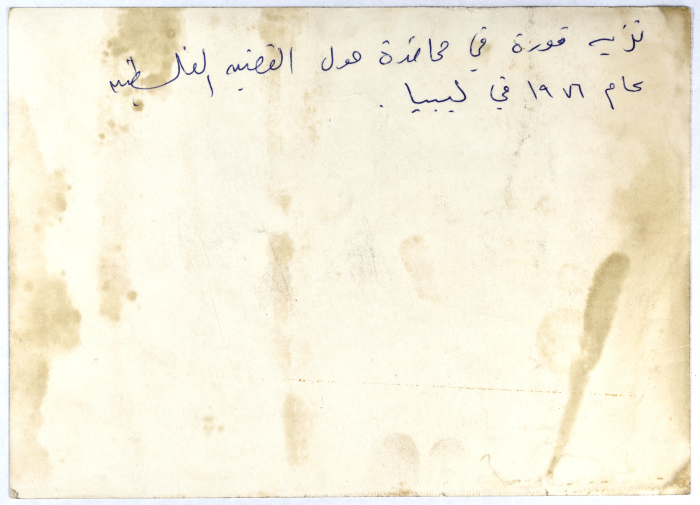 نزيه قورة في محاضرة حول القضيه الفلسطينيه
عام ١٩٧٦ في ليبيا .